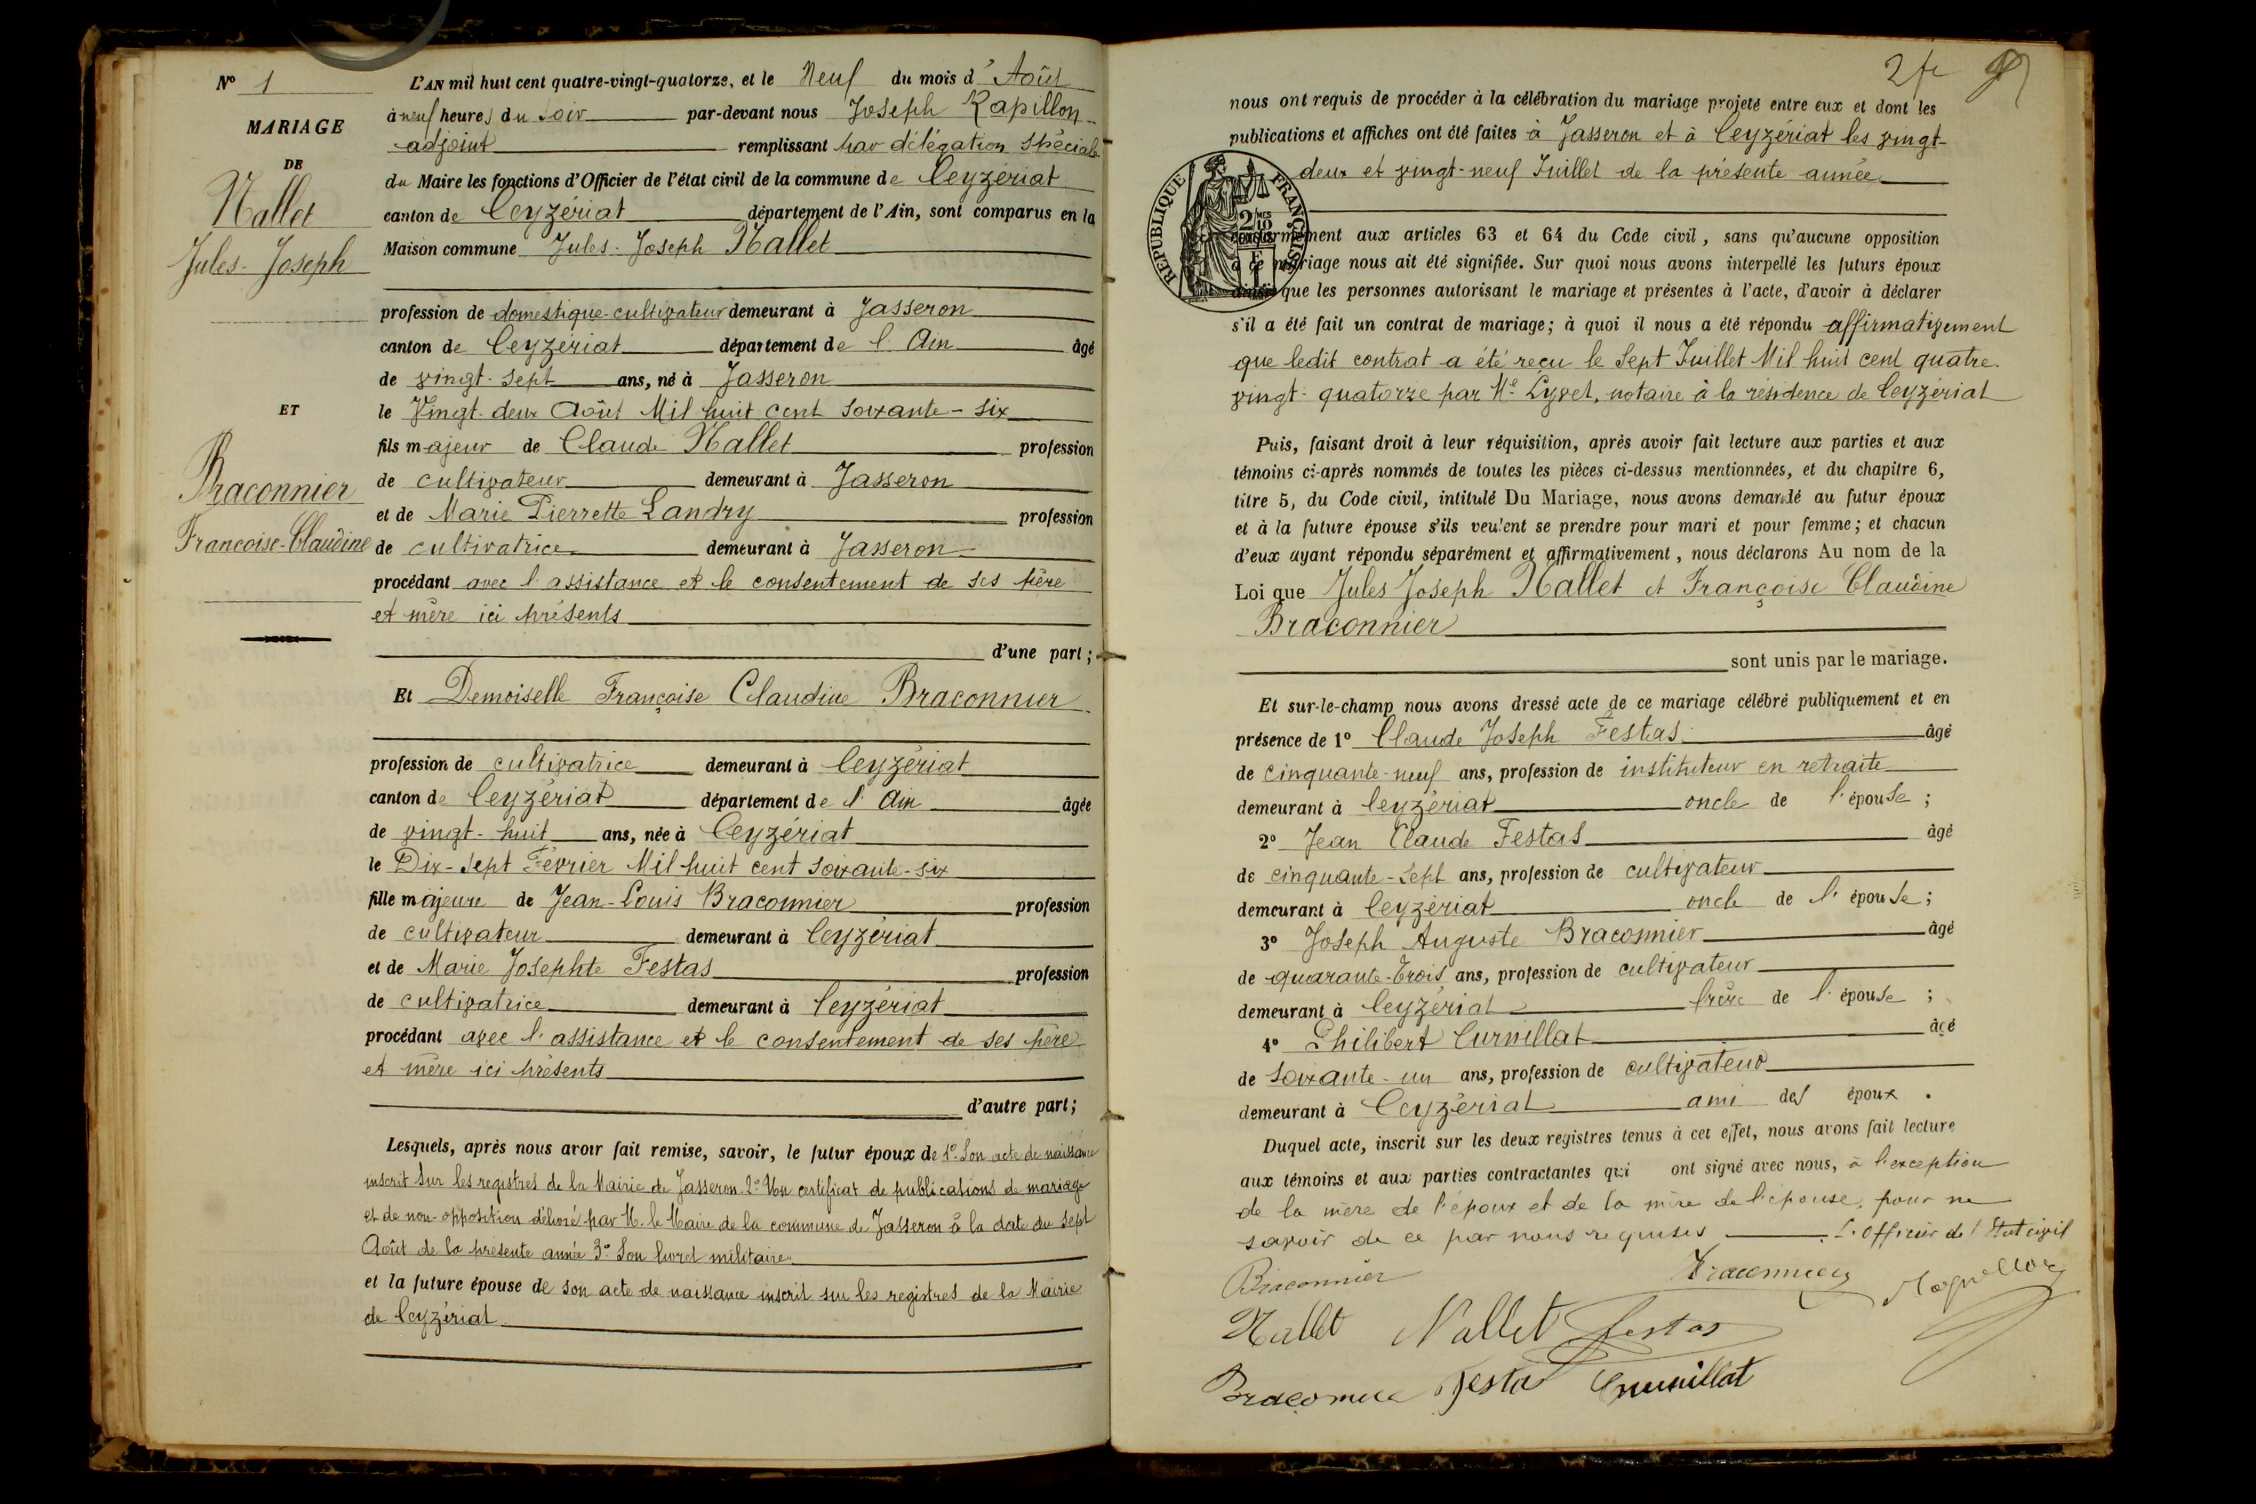 N° 1
MARIAGE
DE
Nallet
Jules-Joseph
ET
Braconnier
Francoise-Claudine
L'AN mil huit cent quatre-vingt-quatorze, et le Neuf du mois d'Août
à neuf heures du soir par-devant nous Joseph Rapillon
adjoint remplissant par délégation spéciale
du Maire les fonctions d'Officier de l'état civil de la commune de Ceyzériat
canton de Ceyzériat département de l'Ain, sont comparus en la
Maison commune Jules-Joseph Nallet
profession de domestique-cultivateur demeurant à Jasseron
canton de Ceyzériat département de l'Ain âgé
de vingt-sept ans, né à Jasseron
le Vingt-deux Août Mil huit cent soixante-six
fils majeur de Claude Nallet profession
de cultivateur demeurant à Jasseron
et de Marie Pierrette Landry profession
de cultivatrice demeurant à Jasseron
procédant avec l'assistance et le consentement de ses père
et mère ici présents
d'une part;
Et Demoiselle Françoise Claudine Braconnier
profession de cultivatrice demeurant à Ceyzériat
canton de Ceyzériat département de l'Ain âgée
de vingt-huit ans, née à Ceyzériat
le Dix-sept Février Mil huit cent soixante-six
fille majeure de Jean-Louis Braconnier profession
de cultivateur demeurant à Ceyzériat
et de Marie Josephte Festas profession
de cultivatrice demeurant à Ceyzériat
procédant avec l'assistance et le consentement de ses père
et mère ici présents
d'autre part;
Lesquels, après nous avoir fait remise, savoir, le futur époux de 1° Son acte de naissance
inscrit sur les registres de la Mairie de Jasseron 2° Un certificat de publications de mariage
et de non-opposition délivré par M. le Maire de la commune de Jasseron à la date du sept
Août de la présente année 3° Son livret militaire
et la future épouse de son acte de naissance inscrit sur les registres de la Mairie
de Ceyzériat
2 fc
nous ont requis de procéder à la célébration du mariage projeté entre eux et dont les
publications et affiches ont été faites à Jasseron et à Ceyzériat les vingt-
deux et vingt-neuf Juillet de la présente année
RÉPUBLIQUE FRANÇAISE
conformément aux articles 63 et 64 du Code civil, sans qu'aucune opposition
à ce mariage nous ait été signifiée. Sur quoi nous avons interpellé les futurs époux
ainsi que les personnes autorisant le mariage et présentes à l'acte, d'avoir à déclarer
s'il a été fait un contrat de mariage; à quoi il nous a été répondu affirmativement
que ledit contrat a été reçu le sept Juillet Mil huit cent quatre-
vingt-quatorze par Me Lyvet, notaire à la résidence de Ceyzériat
Puis, faisant droit à leur réquisition, après avoir fait lecture aux parties et aux
témoins ci-après nommés de toutes les pièces ci-dessus mentionnées, et du chapitre 6,
titre 5, du Code civil, intitulé Du Mariage, nous avons demandé au futur époux
et à la future épouse s'ils veulent se prendre pour mari et pour femme; et chacun
d'eux ayant répondu séparément et affirmativement, nous déclarons Au nom de la
Loi que Jules Joseph Nallet et Françoise Claudine
Braconnier
sont unis par le mariage.
Et sur-le-champ nous avons dressé acte de ce mariage célébré publiquement et en
présence de 1° Claude Joseph Festas âgé
de cinquante-neuf ans, profession de instituteur en retraite
demeurant à Ceyzériat oncle de l'épouse;
2° Jean Claude Festas âgé
de cinquante-sept ans, profession de cultivateur
demeurant à Ceyzériat oncle de l'épouse;
3° Joseph Auguste Braconnier âgé
de quarante-trois ans, profession de cultivateur
demeurant à Ceyzériat frère de l'épouse;
4° Philibert Curnillat âgé
de soixante-un ans, profession de cultivateur
demeurant à Ceyzériat ami des époux.
Duquel acte, inscrit sur les deux registres tenus à cet effet, nous avons fait lecture
aux témoins et aux parties contractantes qui ont signé avec nous, à l'exception
de la mère de l'époux et de la mère de l'épouse, pour ne
savoir de ce par nous requises L'officier de l'Etat civil
Braconnier Braconnier Rapillon
Nallet Nallet Festas
Braconnier Festas Curnillat